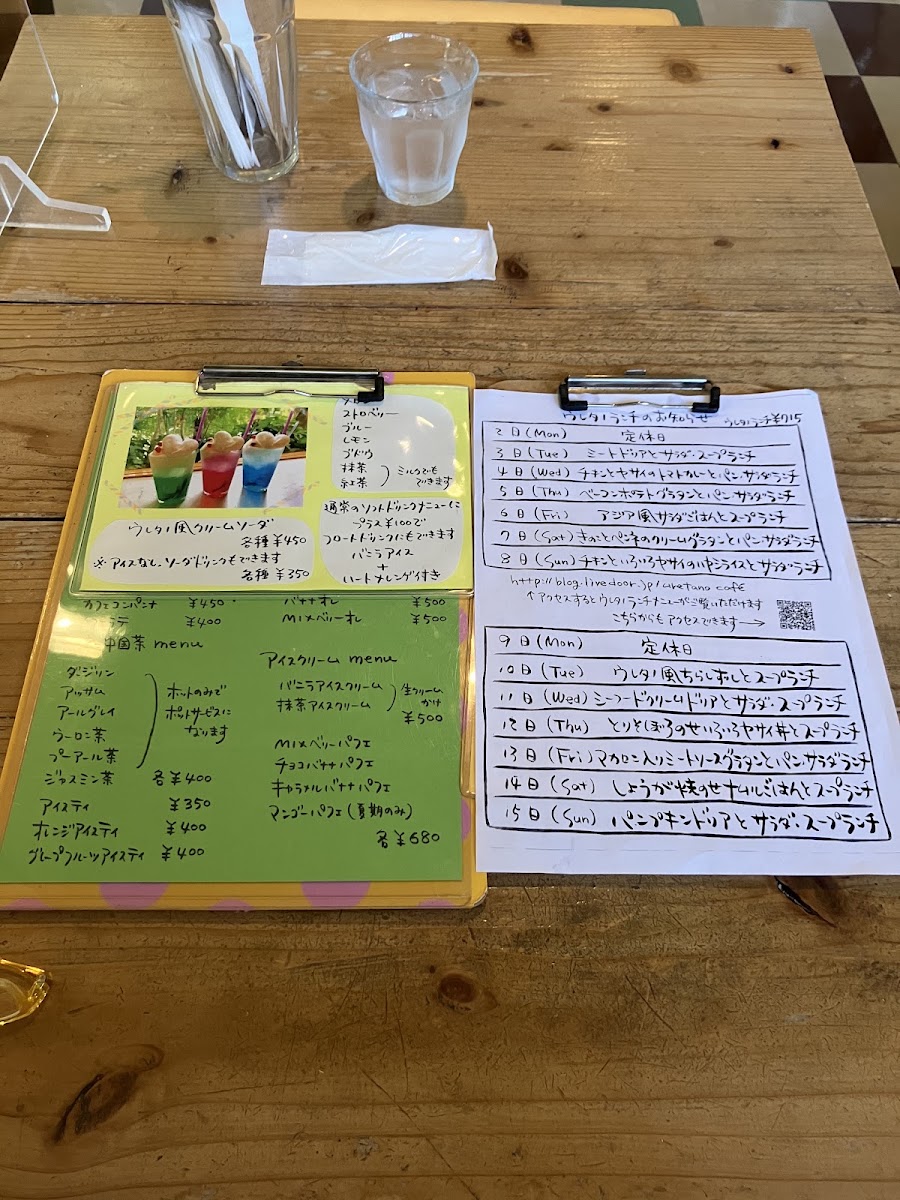 ストロベリー
ブルー
レモン
ブドウ
抹茶
紅茶
ミルクでも
できます
ウレタノ風クリームソーダ
各種 ¥450
※アイスなし、ソーダドリンクもできます
各種 ¥350
通常のソフトドリンクメニューに
プラス¥100で
フロートドリンクにもできます
バニラアイス
+
ハートメレンゲ付き
カフェコンパンナ ¥450
¥400
中国茶 menu
ダージリン
アッサム
アールグレイ
ウーロン茶
プーアール茶
ホットのみで
ポットサービスに
なります
ジャスミン茶 各¥400
アイスティ ¥350
オレンジアイスティ ¥400
グレープフルーツアイスティ ¥400
バナナオレ ¥500
MIXベリーオレ ¥500
アイスクリーム menu
バニラアイスクリーム
抹茶アイスクリーム
生クリーム
かけ
¥500
MIXベリーパフェ
チョコバナナパフェ
キャラメルバナナパフェ
マンゴーパフェ(夏期のみ)
各¥680
ウレタノランチのお知らせ ウレタノランチ¥715
2日(Mon) 定休日
3日(Tue) ミートドリアとサラダ・スープランチ
4日(Wed) チキンとヤサイのトマトカレーとパン・サラダランチ
5日(Thu) ベーコンポテトグラタンとパン・サラダランチ
6日(Fri) アジア風サラダごはんとスープランチ
7日(Sat) きのことペンネのクリームグラタンとパン・サラダランチ
8日(Sun) チキンといろいろヤサイのハヤシライスとサラダランチ
http://blog.livedoor.jp/uretano cafe
↑アクセスするとウレタノランチメニューがご覧いただけます
こちらからもアクセスできます→
9日(Mon) 定休日
10日(Tue) ウレタノ風ちらしずしとスープランチ
11日(Wed) シーフードクリームドリアとサラダ・スープランチ
12日(Thu) とりそぼろのせいろいろヤサイ丼とスープランチ
13日(Fri) マカロニ入りミートソースグラタンとパン・サラダランチ
14日(Sat) しょうが焼のせナムルごはんとスープランチ
15日(Sun) パンプキンドリアとサラダ・スープランチ